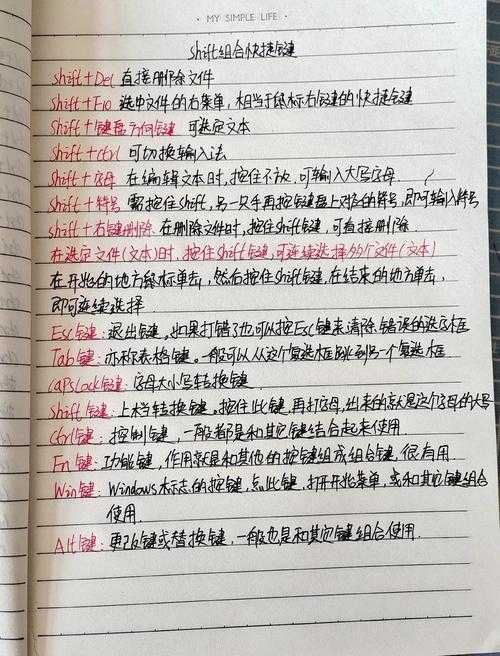 · MY SIMPLE LIFE ·
Shift组合快捷键
Shift+Del 直接删除文件
Shift+F10 选中文件的右菜单,相当于鼠标右键的快捷键
Shift+键盘方向键 可选定文本
Shift+Ctrl 可切换输入法
Shift+字母 在编辑文本时,按住不放,可输入大写字母
Shift+符号 需按住Shift,另一只手再按键盘上对应的符号,即可输入符号
Shift+右键删除 在删除文件时,按住Shift键,可直接删除
在选定文件(文本)时,按住Shift键,可连续选择多个文件(文本)
在开始的地方鼠标单击,然后按住Shift键,在结束的地方单击,
即可连续选择
Esc键:退出键,如果打错了也可以按Esc键来清除错误的选项框
Tab键:亦称表格键。一般可以从这个复选框跳到另一个复选框
CapsLock键:字母大小写转换键
Shift键:上档转换键。按住此键,再打字母,出来的就是这个字母的大写
Ctrl键:控制键,一般都是和其它键结合起来使用
Fn键:功能键,作用就是和其他的按键组成组合键,很有用
Win键:Windows标志的按键,点此键,打开开始菜单,或和其它键组合
使用
Alt键:更改键或替换键,一般也是和其它键组合使用.